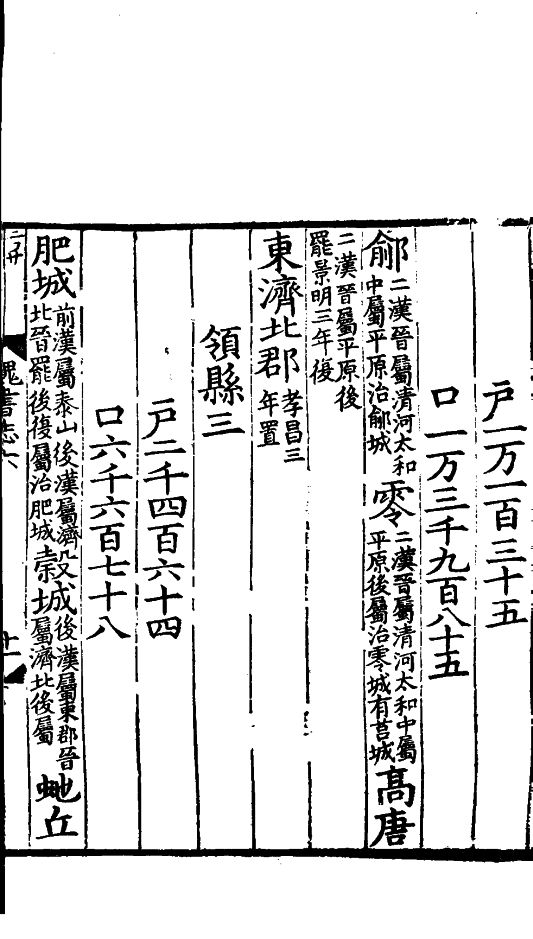 戸一万一百三十五
口一万三千九百八十五
鄃二漢晉屬清河太和中屬平原治鄃城 零二漢晉屬清河太和中屬平原後屬治零城有莒城 高唐
二漢晉屬平原後罷景明三年復
東濟北郡孝昌三年置
領縣三
戸二千四百六十四
口六千六百七十八
肥城前漢屬泰山後漢屬濟北晉罷後復屬治肥城 穀城後漢屬東郡晉屬濟北後屬 虵丘
魏書志六 十一